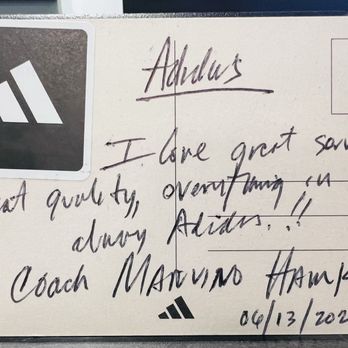 Adidas
I love great serv
at quality, everything in
always Adidas.!!
Coach MARVINO HAWK
06/13/202